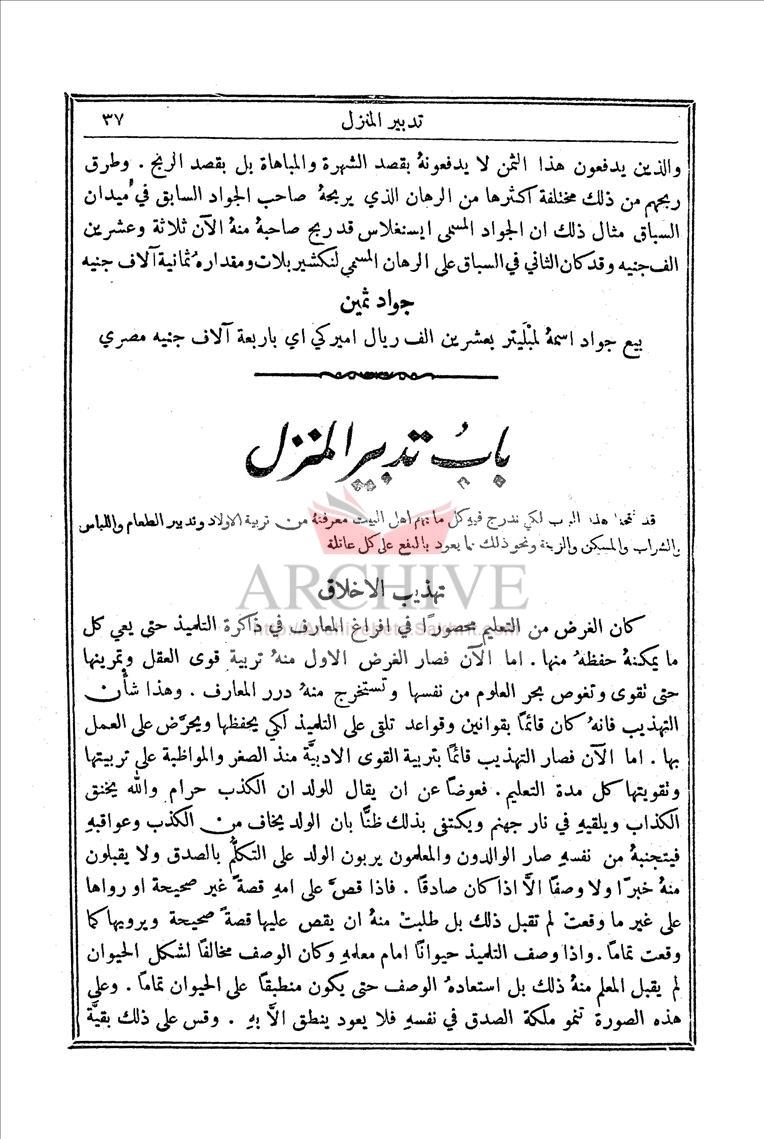 تدبير المنزل ٣٧
والذين يدفعون هذا الثمن لا يدفعونهُ بقصد الشهرة والمباهاة بل بقصد الربح . وطرق
ربحهم من ذلك مختلفة اكثرها من الرهان الذي يربحهُ صاحب الجواد السابق في ميدان
السباق مثال ذلك ان الجواد المسمى ايسنغلاس قد ربح صاحبهُ منهُ الآن ثلاثة وعشرين
الف جنيه وقد كان الثاني في السباق على الرهان المسمى لنكشيربلات ومقداره ُ ثمانية آلاف جنيه
جواد ثمين
بيع جواد اسمهُ لمبْليتر بعشرين الف ريال اميركي اي باربعة آلاف جنيه مصري
بابُ تدبير المنزل
قد فتحنا هذا الباب لكي ندرج فيه كل ما يهم اهل البيت معرفتهُ من تربية الاولاد وتدبير الطعام واللباس
والشراب والمسكن والزينة ونحو ذلك مما يعود بالنفع على كل عائلة
ARCHIVE
تهذيب الاخلاق
كان الغرض من التعليم محصورًا في افراغ المعارف في ذاكرة التلميذ حتى يعي كل
ما يمكنهُ حفظهُ منها . اما الآن فصار الغرض الاول منهُ تربية قوى العقل وتمرينها
حتى تقوى وتغوص بحر العلوم من نفسها وتستخرج منهُ درر المعارف . وهذا شأن
التهذيب فانهُ كان قائمًا بقوانين وقواعد تلقى على التلميذ لكي يحفظها ويحرَّض على العمل
بها . اما الآن فصار التهذيب قائمًا بتربية القوى الادبيَّة منذ الصغر والمواظبة على تربيتها
وتقويتها كل مدة التعليم . فعوضًا عن ان يقال للولد ان الكذب حرام والله يخنق
الكذاب ويلقيهِ في نار جهنم ويكتفى بذلك ظنًّا بان الولد يخاف من الكذب وعواقبهِ
فيتجنبهُ من نفسهِ صار الوالدون والمعلمون يربون الولد على التكلُّم بالصدق ولا يقبلون
منهُ خبرًا ولا وصفًا الَّا اذا كان صادقًا . فاذا قصَّ على امهِ قصةً غير صحيحة او رواها
على غير ما وقعتْ لم تقبل ذلك بل طلبتْ منهُ ان يقص عليها قصةً صحيحة ويرويها كما
وقعت تمامًا . واذا وصف التلميذ حيوانًا امام معلمهِ وكان الوصف مخالفًا لشكل الحيوان
لم يقبل المعلم منهُ ذلك بل استعادهُ الوصف حتى يكون منطبقًا على الحيوان تمامًا . وعلى
هذه الصورة تنمو ملكة الصدق في نفسهِ فلا يعود ينطق الاَّ بهِ . وقس على ذلك بقيَّة